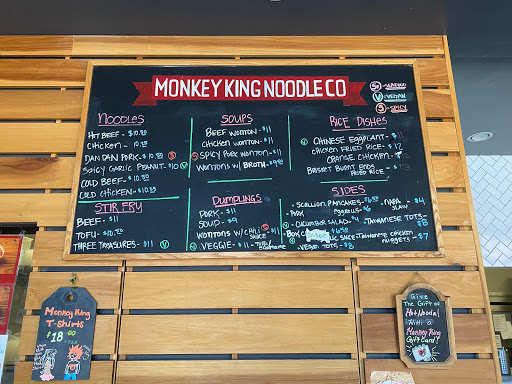 MONKEY KING NOODLE CO
S - SEAFOOD
V - VEGAN
S - SPICY
NOODLES
HOT BEEF - $10.50
CHICKEN - 10.50
DAN DAN PORK - $10.50 S
SPICY GARLIC PEANUT - $10 V
COLD BEEF - $10.50
COLD CHICKEN - $10.50
STIR FRY
BEEF - $11
TOFU - $10.50
THREE TREASURES - $11 V
SOUPS
BEEF WONTON - $11
CHICKEN WONTON - $11
S SPICY PORK WONTON - $11
WONTONS W/ BROTH - $9.50
DUMPLINGS
PORK - $11
SOUP - $9
WONTONS W/ CHILI SAUCE
V VEGGIE - $11 - TOFU/
RICE DISHES
V CHINESE EGGPLANT -
CHICKEN FRIED RICE - $12
ORANGE CHICKEN -
BRISKET BURNT ENDS
FRIED RICE -
SIDES
- SCALLION PANCAKES - $6.50
- NAPA SLAW - $4
- PORK EGGROLLS - $6
- CUCUMBER SALAD - $4
- TAIWANESE TOTS - $8
- TAIWANESE CHICKEN NUGGETS - $7
- VEGAN TOTS - $8
Monkey King
T-Shirts
$18.00
Give
The Gift of
Hot Noods!
With a
Monkey King
Gift Card!